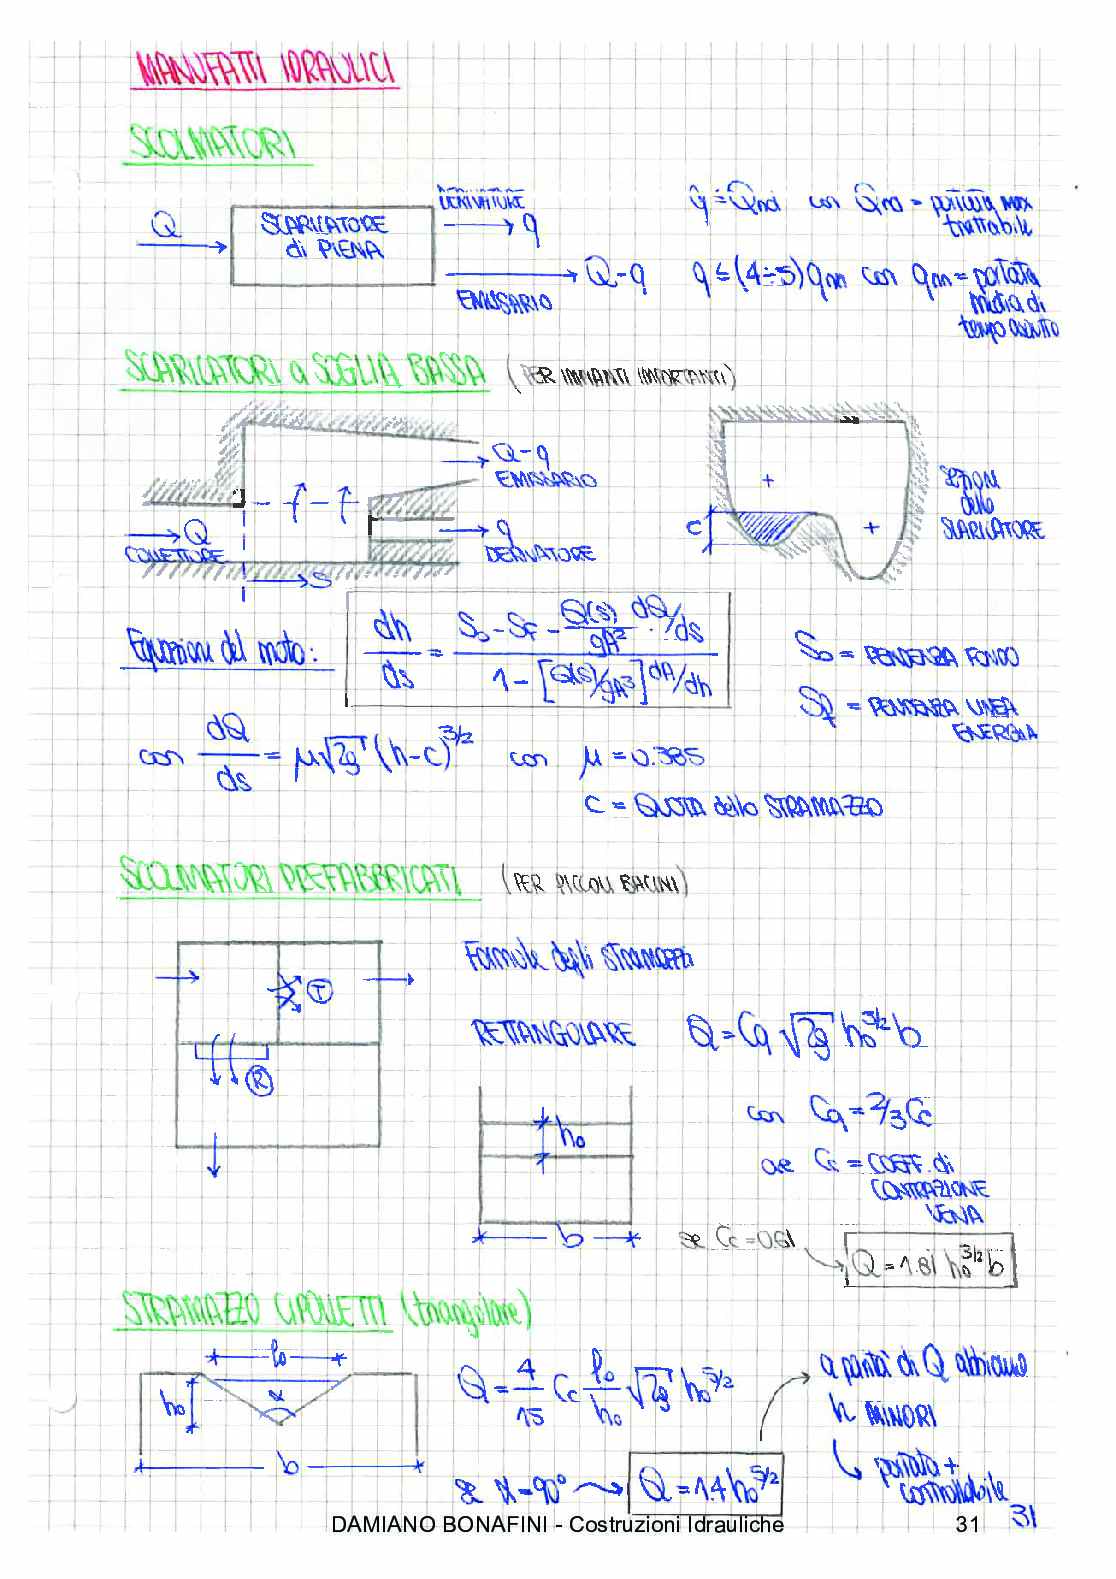 MANUFATTI IDRAULICI
SCOLMATORI
Q
SCARICATORE
di PIENA
DERIVATORE
q
Q-q
EMISSARIO
q ≐ Qnd con Qnd = portata max
trattabile
q ≤ (4÷5) qm con qm = portata
media di
tempo asciutto
SCARICATORI a SOGLIA BASSA (PER IMPIANTI IMPORTANTI)
Q-q
EMISSARIO
Q
COLLETTORE
q
DERIVATORE
S
c
SEZIONE
dello
SCARICATORE
Equazioni del moto:
dh/ds = (So - Sf - Q(s)/gA² · dQ/ds) / (1 - [Q(s)/gA³] dA/dh)
So = PENDENZA FONDO
Sf = PENDENZA LINEA
ENERGIA
con dQ/ds = μ√2g (h-c)^3/2 con μ = 0.385
c = QUOTA dello STRAMAZZO
SCOLMATORI PREFABBRICATI (PER PICCOLI BACINI)
T
R
Formule degli stramazzi
RETTANGOLARE Q = Cq √2g ho^3/2 b
ho
b
con Cq = 2/3 Cc
Cc = COEFF. di
CONTRAZIONE
VENA
se Cc = 0.61
Q = 1.81 ho^3/2 b
STRAMAZZO CIPOLLETTI (triangolare)
lo
ho
α
b
Q = 4/15 Cc lo/ho √2g ho^5/2
se α = 90°
Q = 1.4 ho^5/2
a parità di Q abbiamo
h MINORI
portata +
controllabile
31
DAMIANO BONAFINI - Costruzioni Idrauliche 31